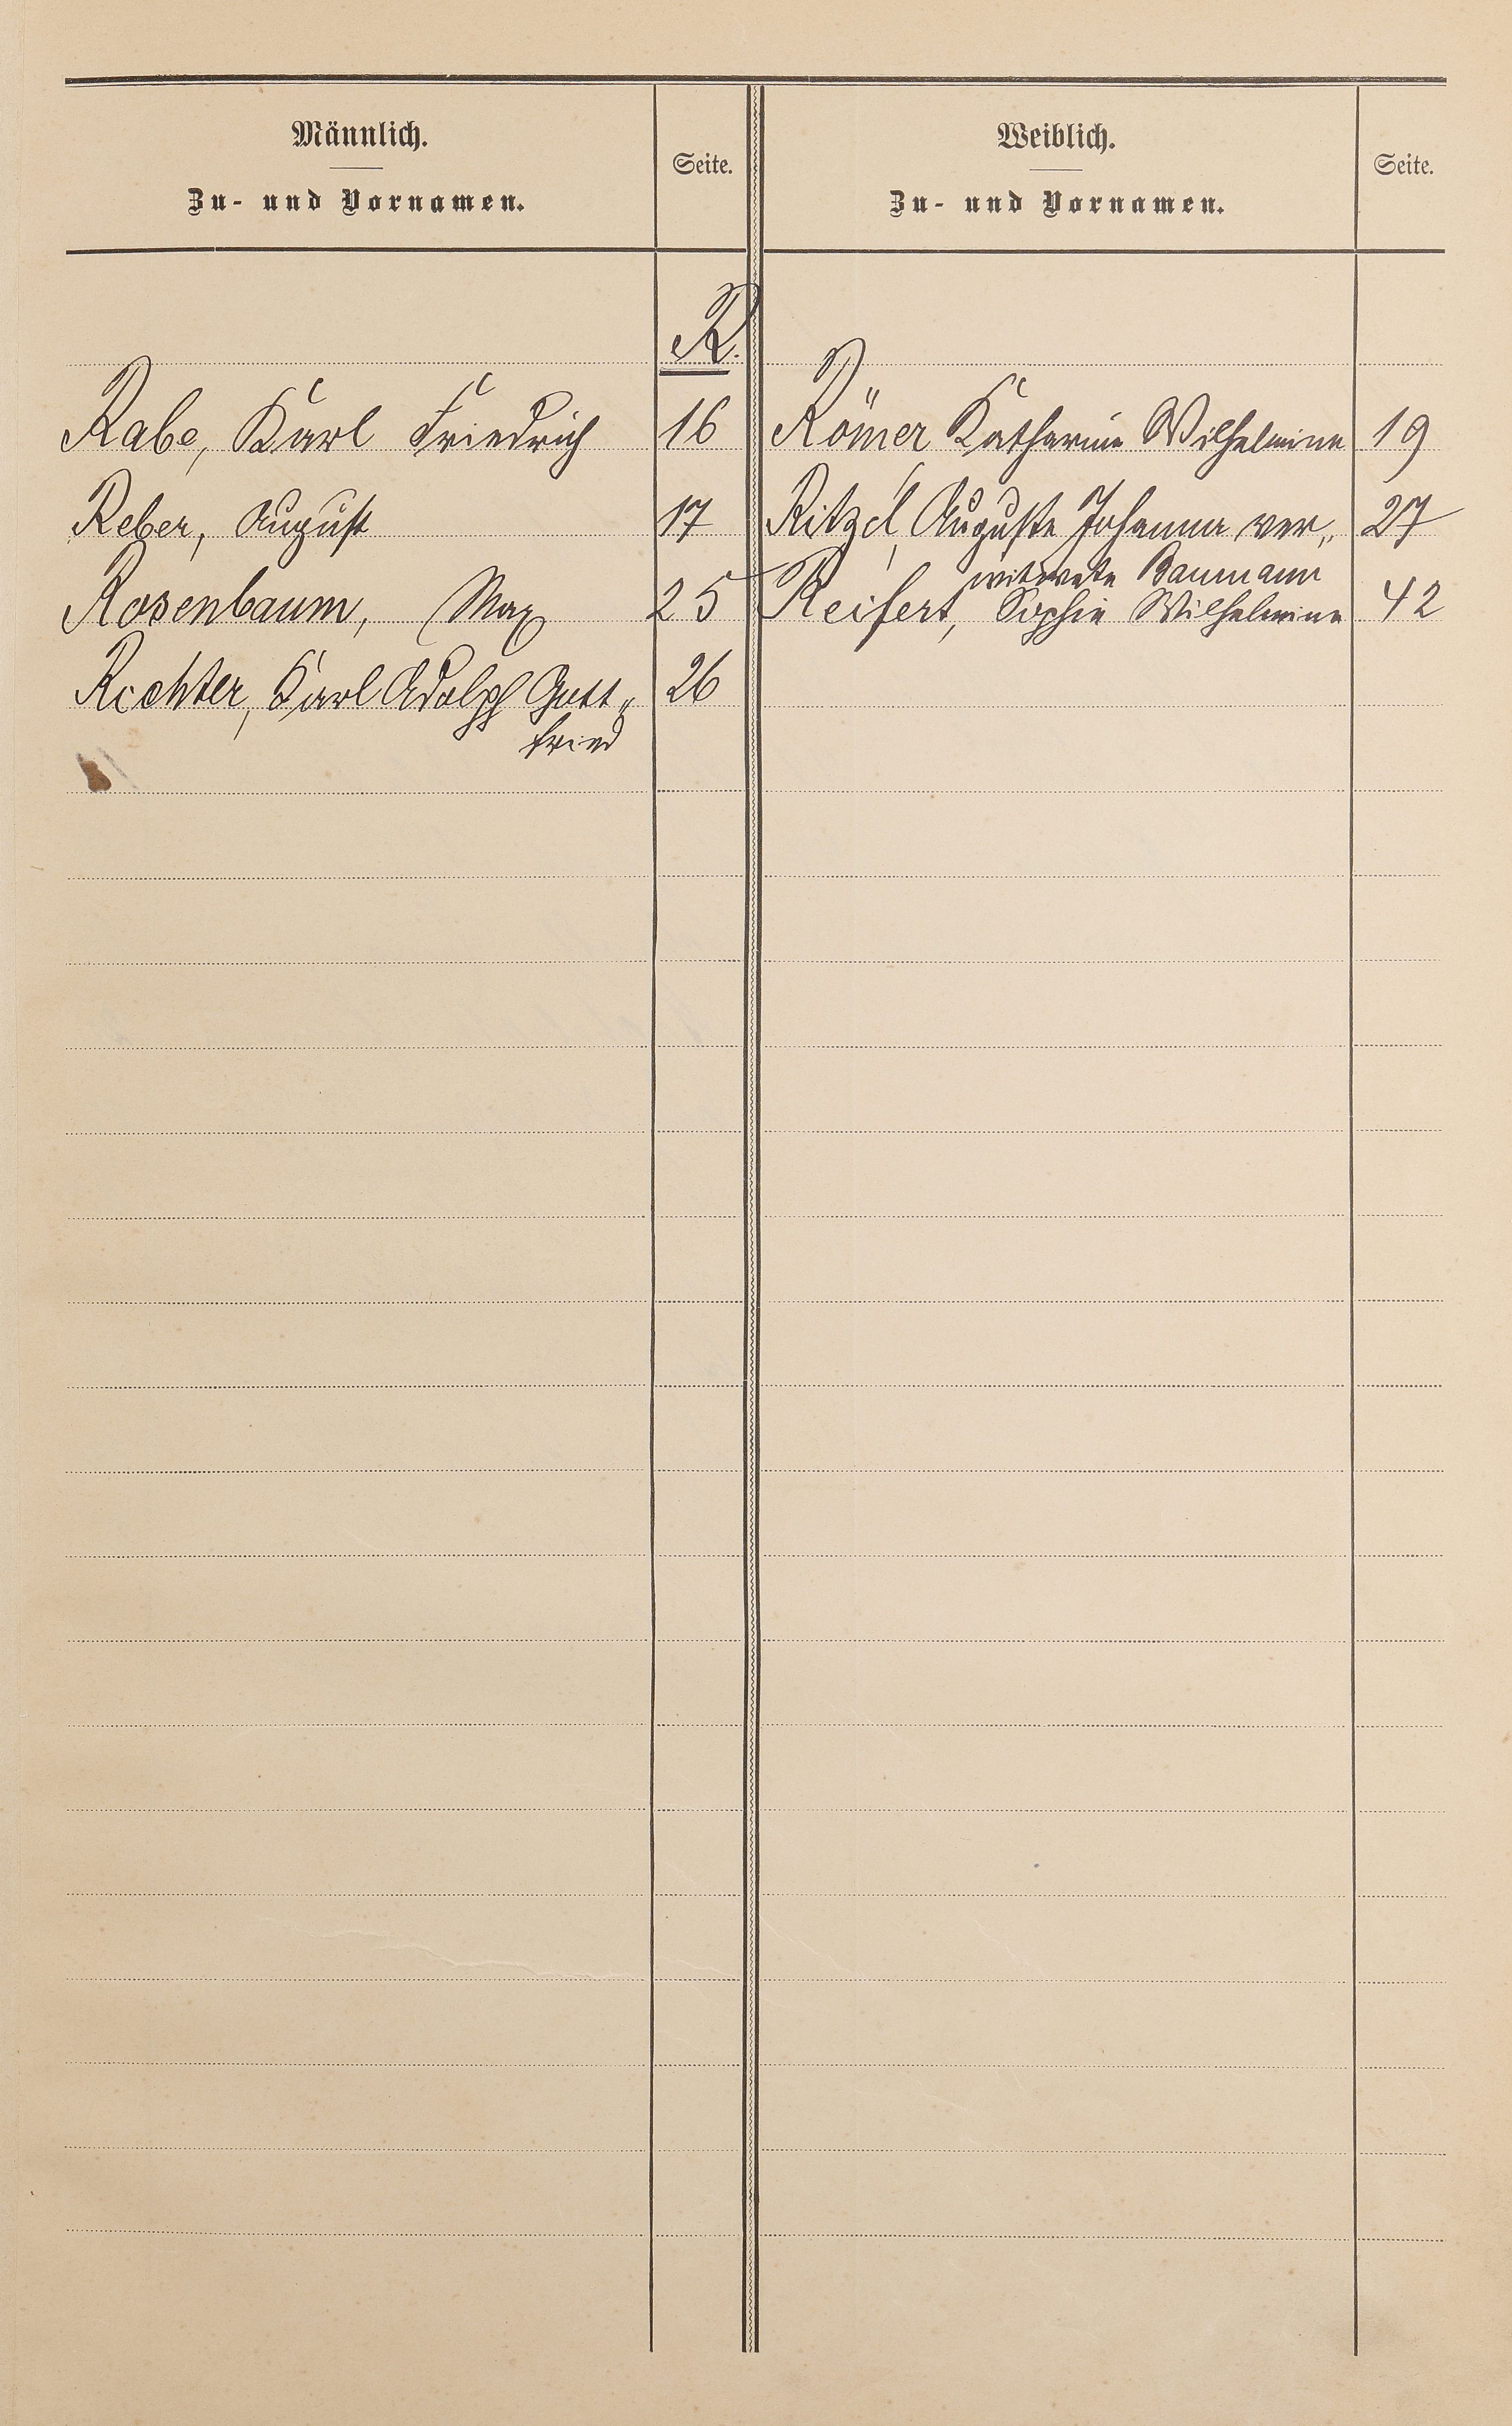 Männlich.
Zu- und Vornamen.
Seite.
Weiblich.
Zu- und Vornamen.
Seite.
R.
Rabe, Karl Friedrich 16
Römer Katharine Wilhelmine 19
Reber, August 17
Ritzel, Auguste Johanna ver„
witwete Baumann 27
Rosenbaum, Max 25
Reifert, Sophie Wilhelmine 42
Richter, Karl Adolph Gott„ 26
fried